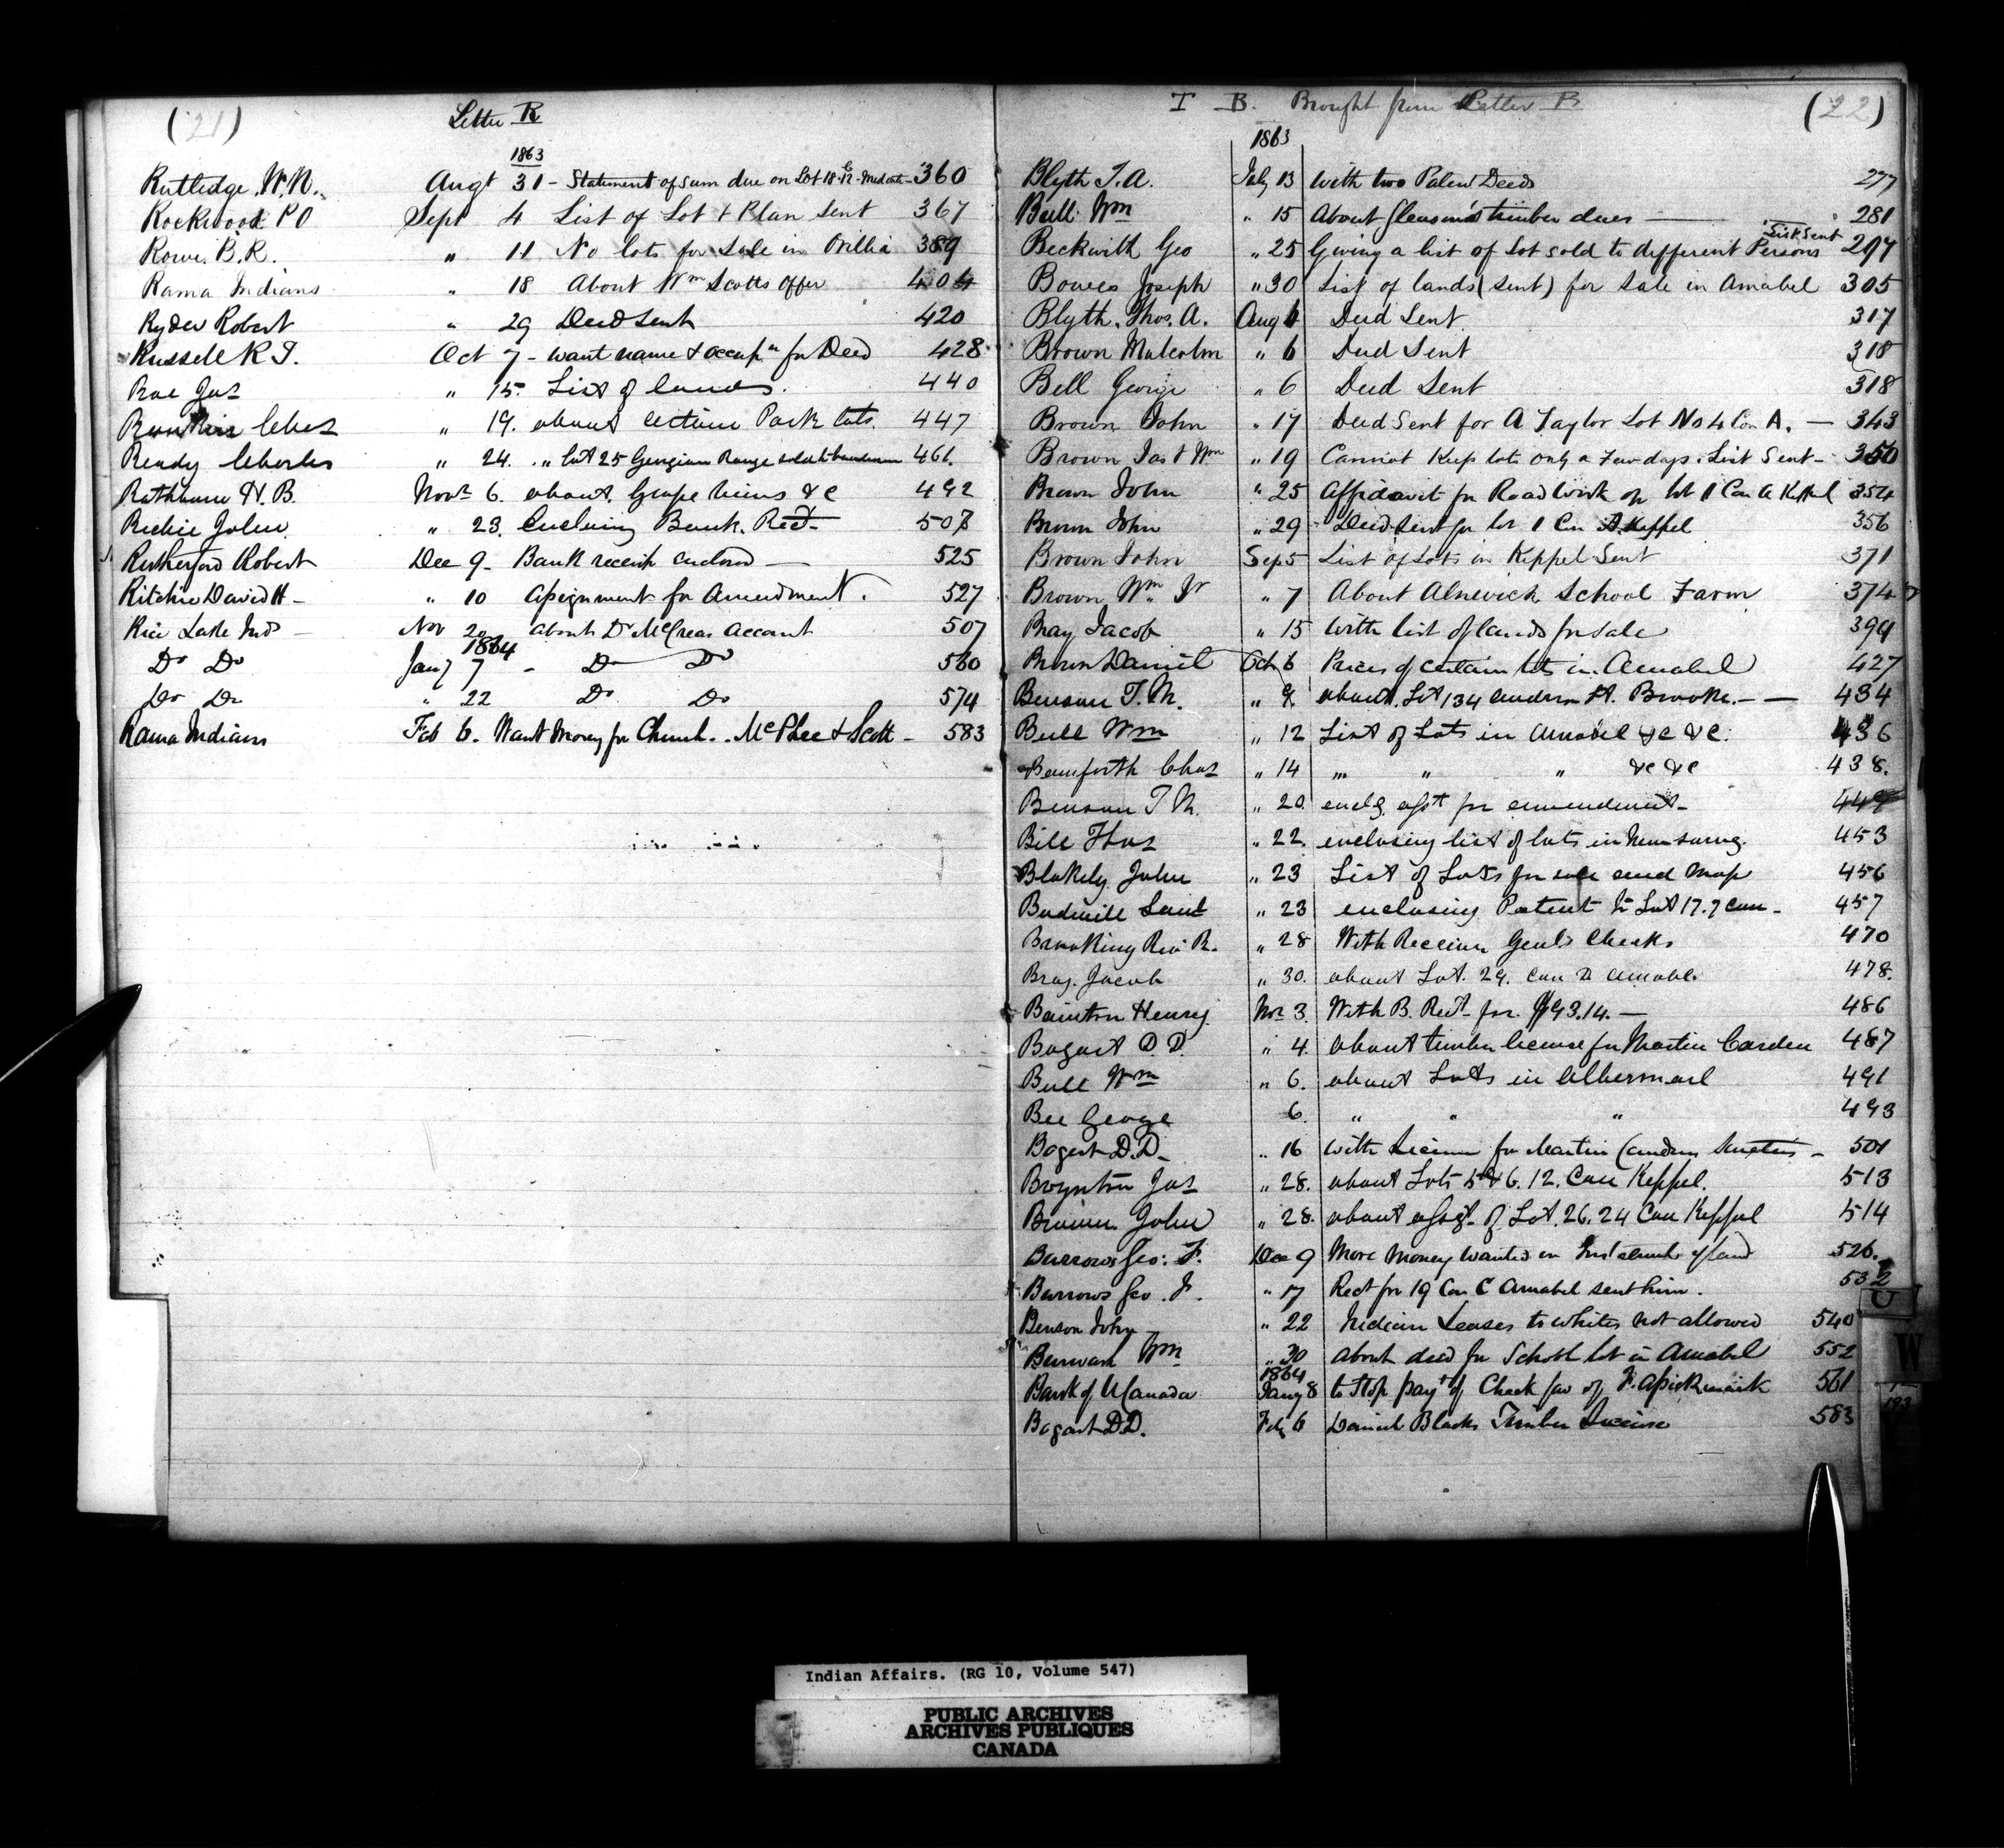 (21)
Letter R
1863
Rutledge W. N. Augt 31 - Statement of sum due on Lot 18 - 360
Rockwood P O Sept 4 List of Lot & Plan Sent 367
Rowe B. R. " 11 No lots for Sale in Orillia 389
Rama Indians " 18 About Wm Scotts Offer 404
Ryder Robert " 29 Deed Sent 420
Russell R T. Oct 7 - want name & occupn for Deed 428
Rae Jas " 15. List of lands. 440
Chas " 19. about certain Park lots 447
Ready Charles " 24. " Lot 25 Georgian Range 461.
Rathbun H. B. Novr 6. about Grape Vines &c 492
Richie John " 23. Enclosing Bank Rect 507
Rutherford Robert Dec 9 - Bank receipt enclosed — 525
Ritchie David H - " 10 Assignment for Amendment. 527
Rice Lake Inds — Nov 20 about Dr McCreas Account 507
1864
Do Do Jany 7 - Do Do 560
Do Do " 22 Do Do 574
Rama Indians Feb 6. Want Money for Church. McPhee & Scott - 583
I B. Brought from Letter B (22)
1863
Blyth T. A. July 13 With two Patent Deeds 277
Bull Wm " 15 About Gleason's timber dues — 281
List Sent
Beckwith Geo " 25 Giving a list of Lot sold to different Persons 297
Bowes Joseph " 30 List of lands (sent) for Sale in Amabel 305
Blyth, Thos. A. Aug 6 Deed Sent 317
Brown Malcolm " 6 Deed Sent 318
Bell George " 6 Deed Sent 318
Brown John " 17 Deed Sent for A Taylor Lot No 4 Con A. — 343
Brown Jas & Wm " 19 Cannot Keep lots only a few days. List Sent - 350
Brown John " 25 Affidavit for Road work on lot 1 Con A Keppel 354
Brown John " 29 Deed Sent for lot 1 Con A. Keppel 356
Brown John Sep 5 List of Lots in Keppel Sent 371
Brown Wm Jr " 7 About Alnwick School Farm 374
Bray Jacob " 15 With list of lands for Sale 399
Brown Daniel Oct 6 Prices of certain lots in Amabel 427
Benson T. M. " 9 about Lot 134 Brooke. — — 434
Bull Wm " 12 List of Lots in Amabel &c &c. 436
Bamforth Chas " 14 " " " &c &c 438.
Benson T M. " 20. enclg asst for amendment - 449
Bill Thos " 22. enclosing list of lots in 453
Blakely John " 23 List of Lots for sale and Map 456
" 23 enclosing Patent for Lot 17. 7 Con - 457
Brooking Rev R. " 28 With Receiver Genls Checks 470
Bray. Jacob " 30. about Lot. 29. Con D Amabel 478.
Bainton Henry. Nov 3. With B. Rect for. $93.14. — 486
Bogart D. D. " 4. about timber license for Martin Carden 487
Bull Wm " 6. about Lots in Albermarl 491
Bee George 6. " " " 493
Bogart D.D. " 16 with License for Martin - 501
Boynton Jas " 28. about Lots 5 & 6. 12. Con Keppel. 513
John " 28. about assgt of Lot. 26. 24 Con Keppel 514
Burrows Geo: F. Dec 9 More Money wanted on Instalmts of land 526.
Burrows Geo. F. " 17 Rect for 19 Con C Amabel sent him. 532
Benson John " 22 Indian Leases to whites not allowed 540
Wm " 30 About deed for School lot in Amabel 552
1864
Bank of U Canada Jany 8 to Stop payt of Check fav of F. Assickinack 561
Bogart D.D. Feb 6 Daniel Blacks Timber License 583
U
W
193
Indian Affairs. (RG 10, Volume 547)
PUBLIC ARCHIVES
ARCHIVES PUBLIQUES
CANADA